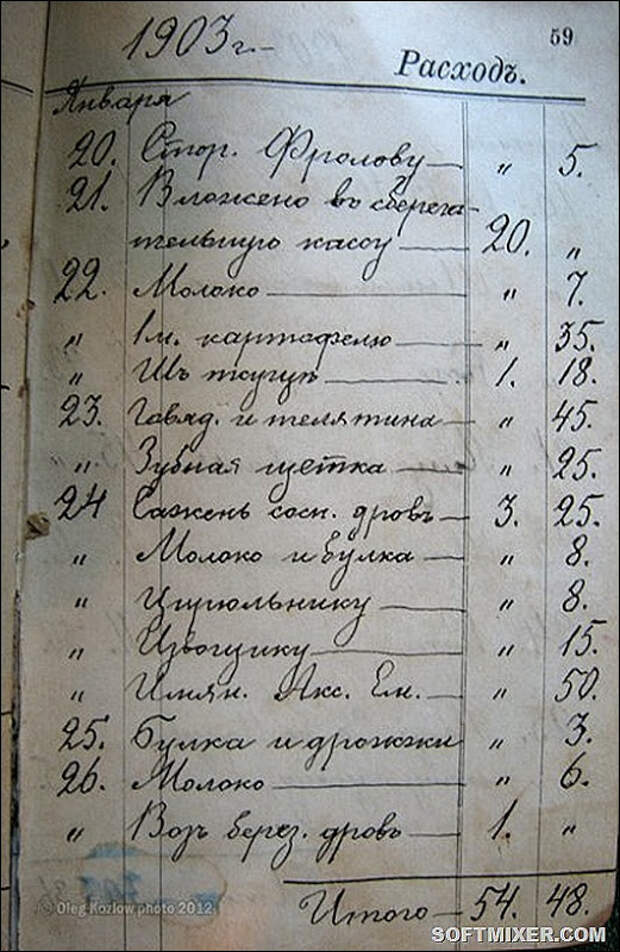 59
1903 г.
Расходъ.
Января
20. Стор. Фролову — „ 5.
21. Вложено въ сберега-
тельную кассу — 20. „
22. Молоко — „ 7.
„ 1 м. картофелю — „ 35.
„ Шъ — 1. 18.
23. Говяд. и телятина — „ 45.
„ Зубная щетка — „ 25.
24 Сажень сосн. дровъ — 3. 25.
„ Молоко и булка — „ 8.
„ Цирюльнику — „ 8.
„ Извощику — „ 15.
„ Имян. Акс. Ем. — „ 50.
25. Булка и дрожжи „ 3.
26. Молоко — „ 6.
„ Возъ берез. дровъ — 1. „
Итого — 54. 48.
© Oleg Kozlow photo 2012
SOFTMIXER.COM